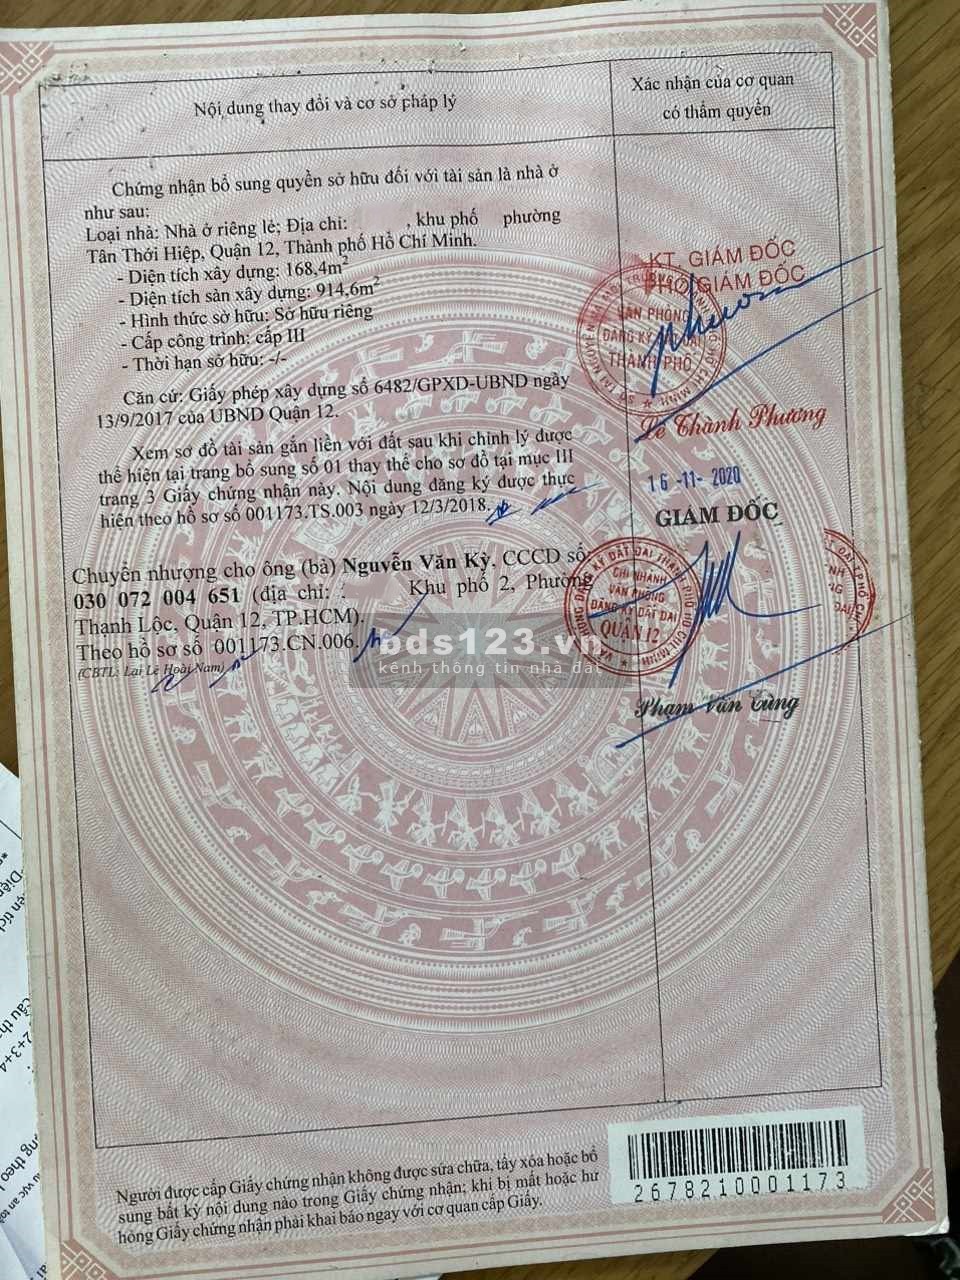 Nội dung thay đổi và cơ sở pháp lý
Xác nhận của cơ quan
có thẩm quyền
Chứng nhận bổ sung quyền sở hữu đối với tài sản là nhà ở
như sau:
Loại nhà: Nhà ở riêng lẻ; Địa chỉ: , khu phố phường
Tân Thới Hiệp, Quận 12, Thành phố Hồ Chí Minh.
- Diện tích xây dựng: 168,4m²
- Diện tích sàn xây dựng: 914,6m²
- Hình thức sở hữu: Sở hữu riêng
- Cấp công trình: cấp III
- Thời hạn sở hữu: -/-
Căn cứ: Giấy phép xây dựng số 6482/GPXD-UBND ngày
13/9/2017 của UBND Quận 12.
Xem sơ đồ tài sản gắn liền với đất sau khi chỉnh lý được
thể hiện tại trang bổ sung số 01 thay thế cho sơ đồ tại mục III
trang 3 Giấy chứng nhận này. Nội dung đăng ký được thực
hiện theo hồ sơ số 001173.TS.003 ngày 12/3/2018.
KT. GIÁM ĐỐC
PHÓ GIÁM ĐỐC
VĂN PHÒNG
ĐĂNG KÝ ĐẤT ĐAI
THÀNH PHỐ
Lê Thành Phương
Chuyển nhượng cho ông (bà) Nguyễn Văn Kỳ. CCCD số
030 072 004 651 (địa chỉ: . Khu phố 2, Phường
Thạnh Lộc, Quận 12, TP.HCM).
Theo hồ sơ số 001173.CN.006.
(CBTL: Lại Lê Hoài Nam)
16 -11- 2020
GIÁM ĐỐC
CHI NHÁNH
VĂN PHÒNG
ĐĂNG KÝ ĐẤT ĐAI
QUẬN 12
Phạm Văn Cùng
bds123.vn
kênh thông tin nhà đất
Người được cấp Giấy chứng nhận không được sửa chữa, tẩy xóa hoặc bổ
sung bất kỳ nội dung nào trong Giấy chứng nhận; khi bị mất hoặc hư
hỏng Giấy chứng nhận phải khai báo ngay với cơ quan cấp Giấy.
2678210001173